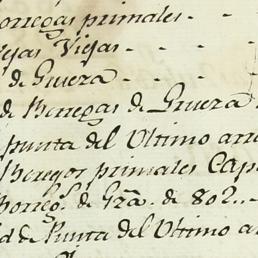 orregas primales - - -
ejas Viejas - - - -
de Guiera - - - -
de Borregas de Guiera
punta del Ultimo arre
Boregos primales Cap
orreg.s de Gra. de 802..
d de Punta del Ultimo ar